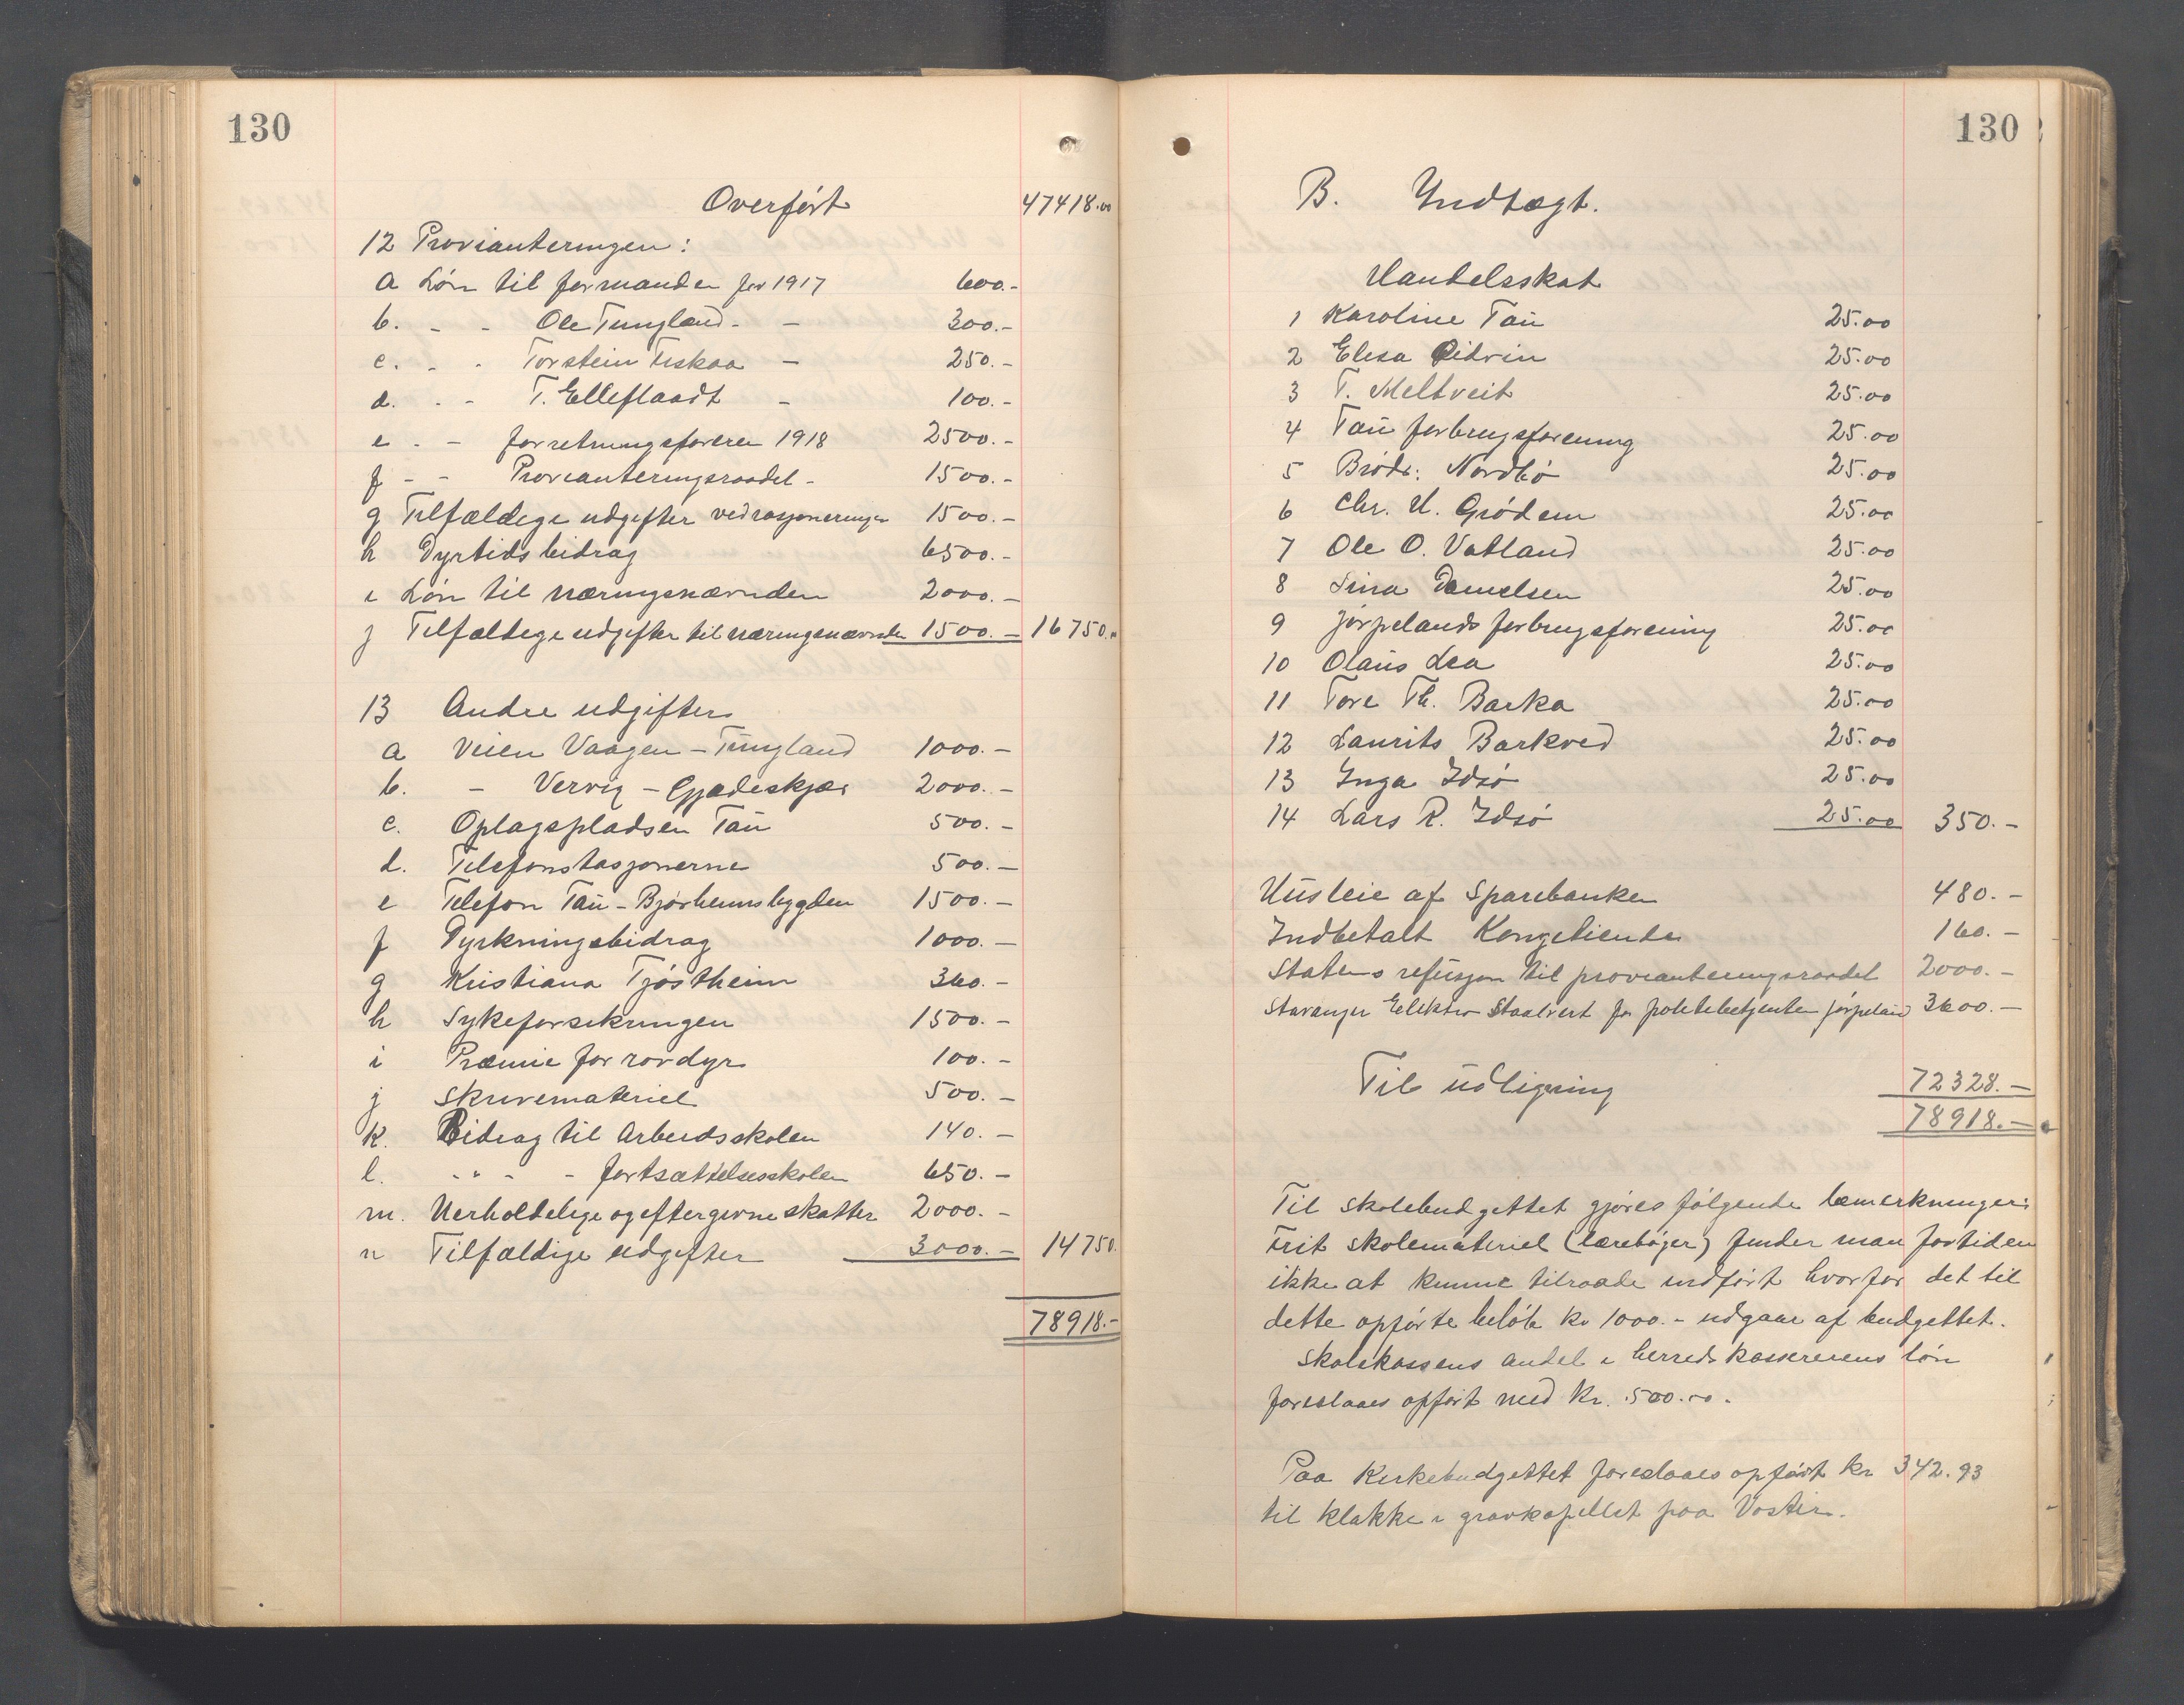 130
Overført 47418.00
12 Provianteringen:
a Løn til formanden for 1917 600.-
b. - - Ole Tungland - - 300.-
c. - - Torstein Fiskaa - 250.-
d. - - T. Elleflaadt - 100.-
e - - forretningsføreren 1918 2500.-
f - - Provianteringsraadet - 1500.-
g Tilfældige udgifter ved rasjoneringen 1500.-
h Dyrtidsbidrag 6500.-
i Løn til næringsnævnden 2000.-
j Tilfældige udgifter til næringsnævnden 1500.- 16750.-
13 Andre udgifter
a Veien Vaagen - Tungland 1000.-
b. - Vervig - Gjædeskjær 2000.-
c. Oplagspladsen Tau 500.-
d. Telefonstasjonerne 500.-
e Telefon Tau - Bjørheimsbygden 1500.-
f Dyrkningsbidrag 1000.-
g Kristiana Tjøstheim 360.-
h Sykeforsikringen 1500.-
i Præmie for rovdyr 100.-
j Skrivemateriel 500.-
k. Bidrag til Arbeidsskolen 140.-
l. - " - - fortsættelsesskolen 650.-
m. Uerholdelige og eftergivne skatter 2000.-
n Tilfældige udgifter 3000.- 14750.
78918.-
130
B. Indtægt.
Handelsskat
1 Karoline Tau 25.00
2 Elisa Eidvin 25.00
3 T. Meltveit 25.00
4 Tau forbrugsforening 25.00
5 Brødr. Nordbø 25.00
6 Chr. H. Grødem 25.00
7 Ole O. Vatland 25.00
8 Sina Danielsen 25.00
9 Jørpelands forbrugsforening 25.00
10 Olaus Lea 25.00
11 Tore Th. Barka 25.00
12 Laurits Barkved 25.00
13 Inga Idsø 25.00
14 Lars R. Idsø 25.00 350.-
Husleie af Sparebanken 480.-
Indbetalt Kongetiende 160.-
Statens refusjon til provianteringsraadet 2000.-
Stavanger Elektro Staalverk for politibetjenten Jørpeland 3600.-
Til udligning 72328.-
78918.-
Til skolebudgettet gjøres følgende bemerkninger:
Frit skolemateriel (lærebøger) finder man for tiden
ikke at kunne tilraade indført hvorfor det til
dette opførte beløb kr 1000.- udgaar af budgettet.
Skolekassens andel i herredskassererens løn
foreslaaes opført med kr. 500.00.
Paa Kirkebudgettet foreslaaes opført kr 342.93
til klokke i gravkapellet paa Voster.